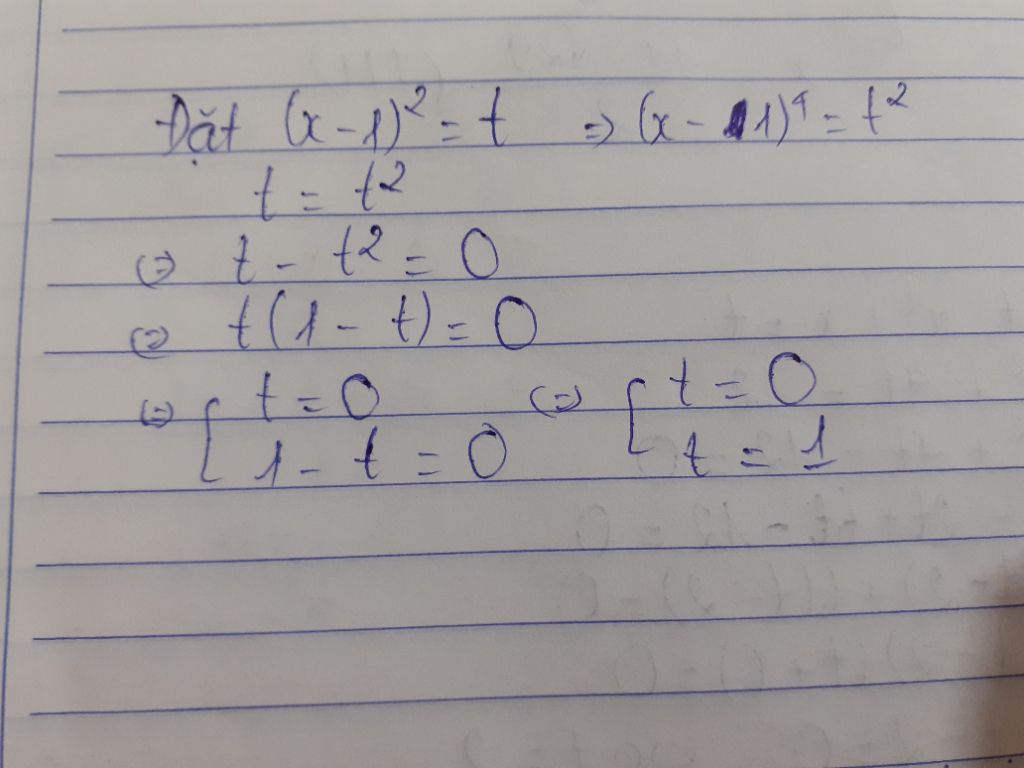 Đặt (x - 1)² = t => (x - 1)⁴ = t²
t = t²
(=) t - t² = 0
(=) t(1 - t) = 0
(=) [ t = 0 (=) [ t = 0
1 - t = 0 t = 1